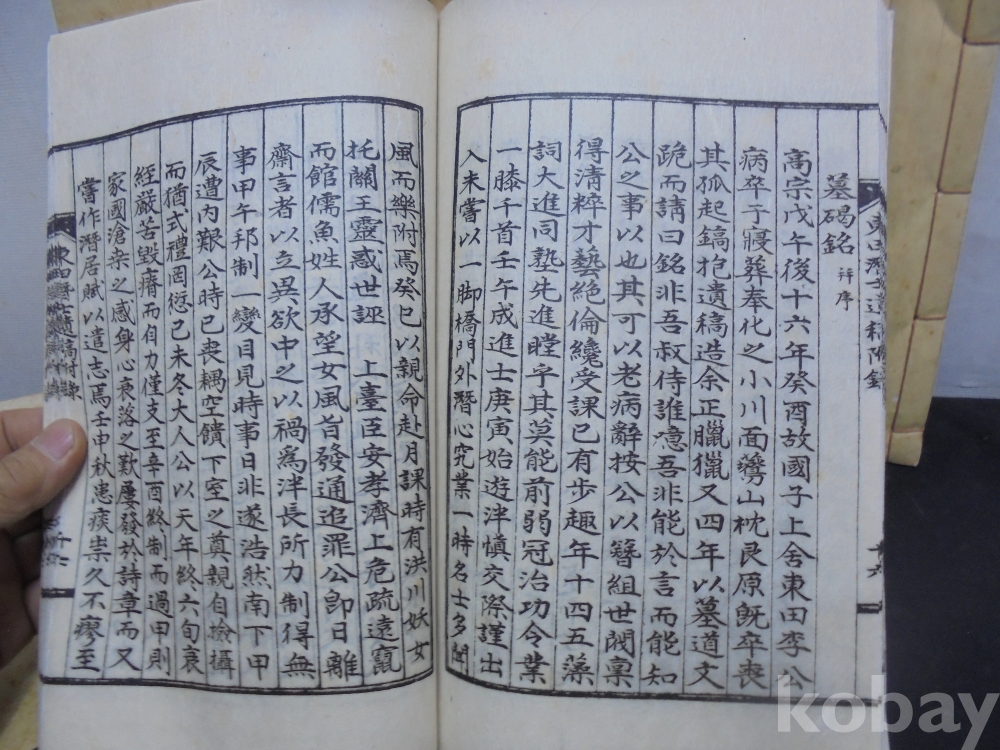 墓碣銘 幷序
高宗戊午後十六年癸酉故國子上舍東田李公
病卒于寢葬奉化之小川面 山枕艮原旣卒喪
其孤起鎬抱遺稿造余正臘獵又四年以墓道文
跪而請曰銘非吾叔侍誰噫吾非能於言而能知
公之事以也其可以老病辭按公以簪組世閥稟
得淸粹才藝絶倫纔受課已有步趣年十四五藻
詞大進同塾先進瞠乎其莫能前弱冠治功令業
一膝千首壬午成進士庚寅始遊泮愼交際謹出
入未嘗以一脚橋門外潛心究業一時名士多聞
風而樂附焉癸巳以親命赴月課時有洪川妖女
托關王靈惑世誣 上臺臣安孝濟上危疏遠竄
而館儒魚姓人承望女風旨發通追罪公卽日離
齋言者以立異欲中之以禍爲泮長所力制得無
事甲午邦制一變目見時事日非遂浩然南下甲
辰遭內艱公時已喪耦空饋下室之奠親自撿攝
而猶式禮罔愆己未冬大人公以天年終六旬衰
絰嚴苦毁瘠而自力僅支至辛酉終制而過甲則
家國滄桑之感身心衰落之歎屢發於詩章而又
嘗作潛居賦以遣志焉壬申秋患痰祟久不瘳至
kobay